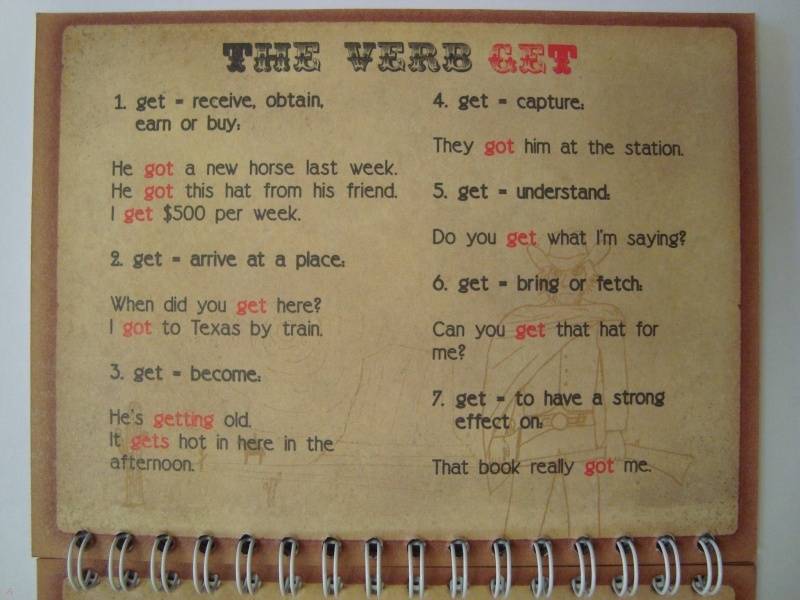 THE VERB GET
1. get = receive, obtain,
earn or buy:
He got a new horse last week.
He got this hat from his friend.
I get $500 per week.
2. get = arrive at a place:
When did you get here?
I got to Texas by train.
3. get = become:
He's getting old.
It gets hot in here in the
afternoon.
4. get = capture:
They got him at the station.
5. get = understand:
Do you get what I'm saying?
6. get = bring or fetch:
Can you get that hat for
me?
7. get = to have a strong
effect on:
That book really got me.